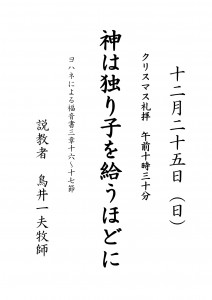 十二月二十五日（日）
クリスマス礼拝　午前十時三十分
神は独り子を給うほどに
ヨハネによる福音書三章十六～十七節
説教者　鳥井一夫牧師